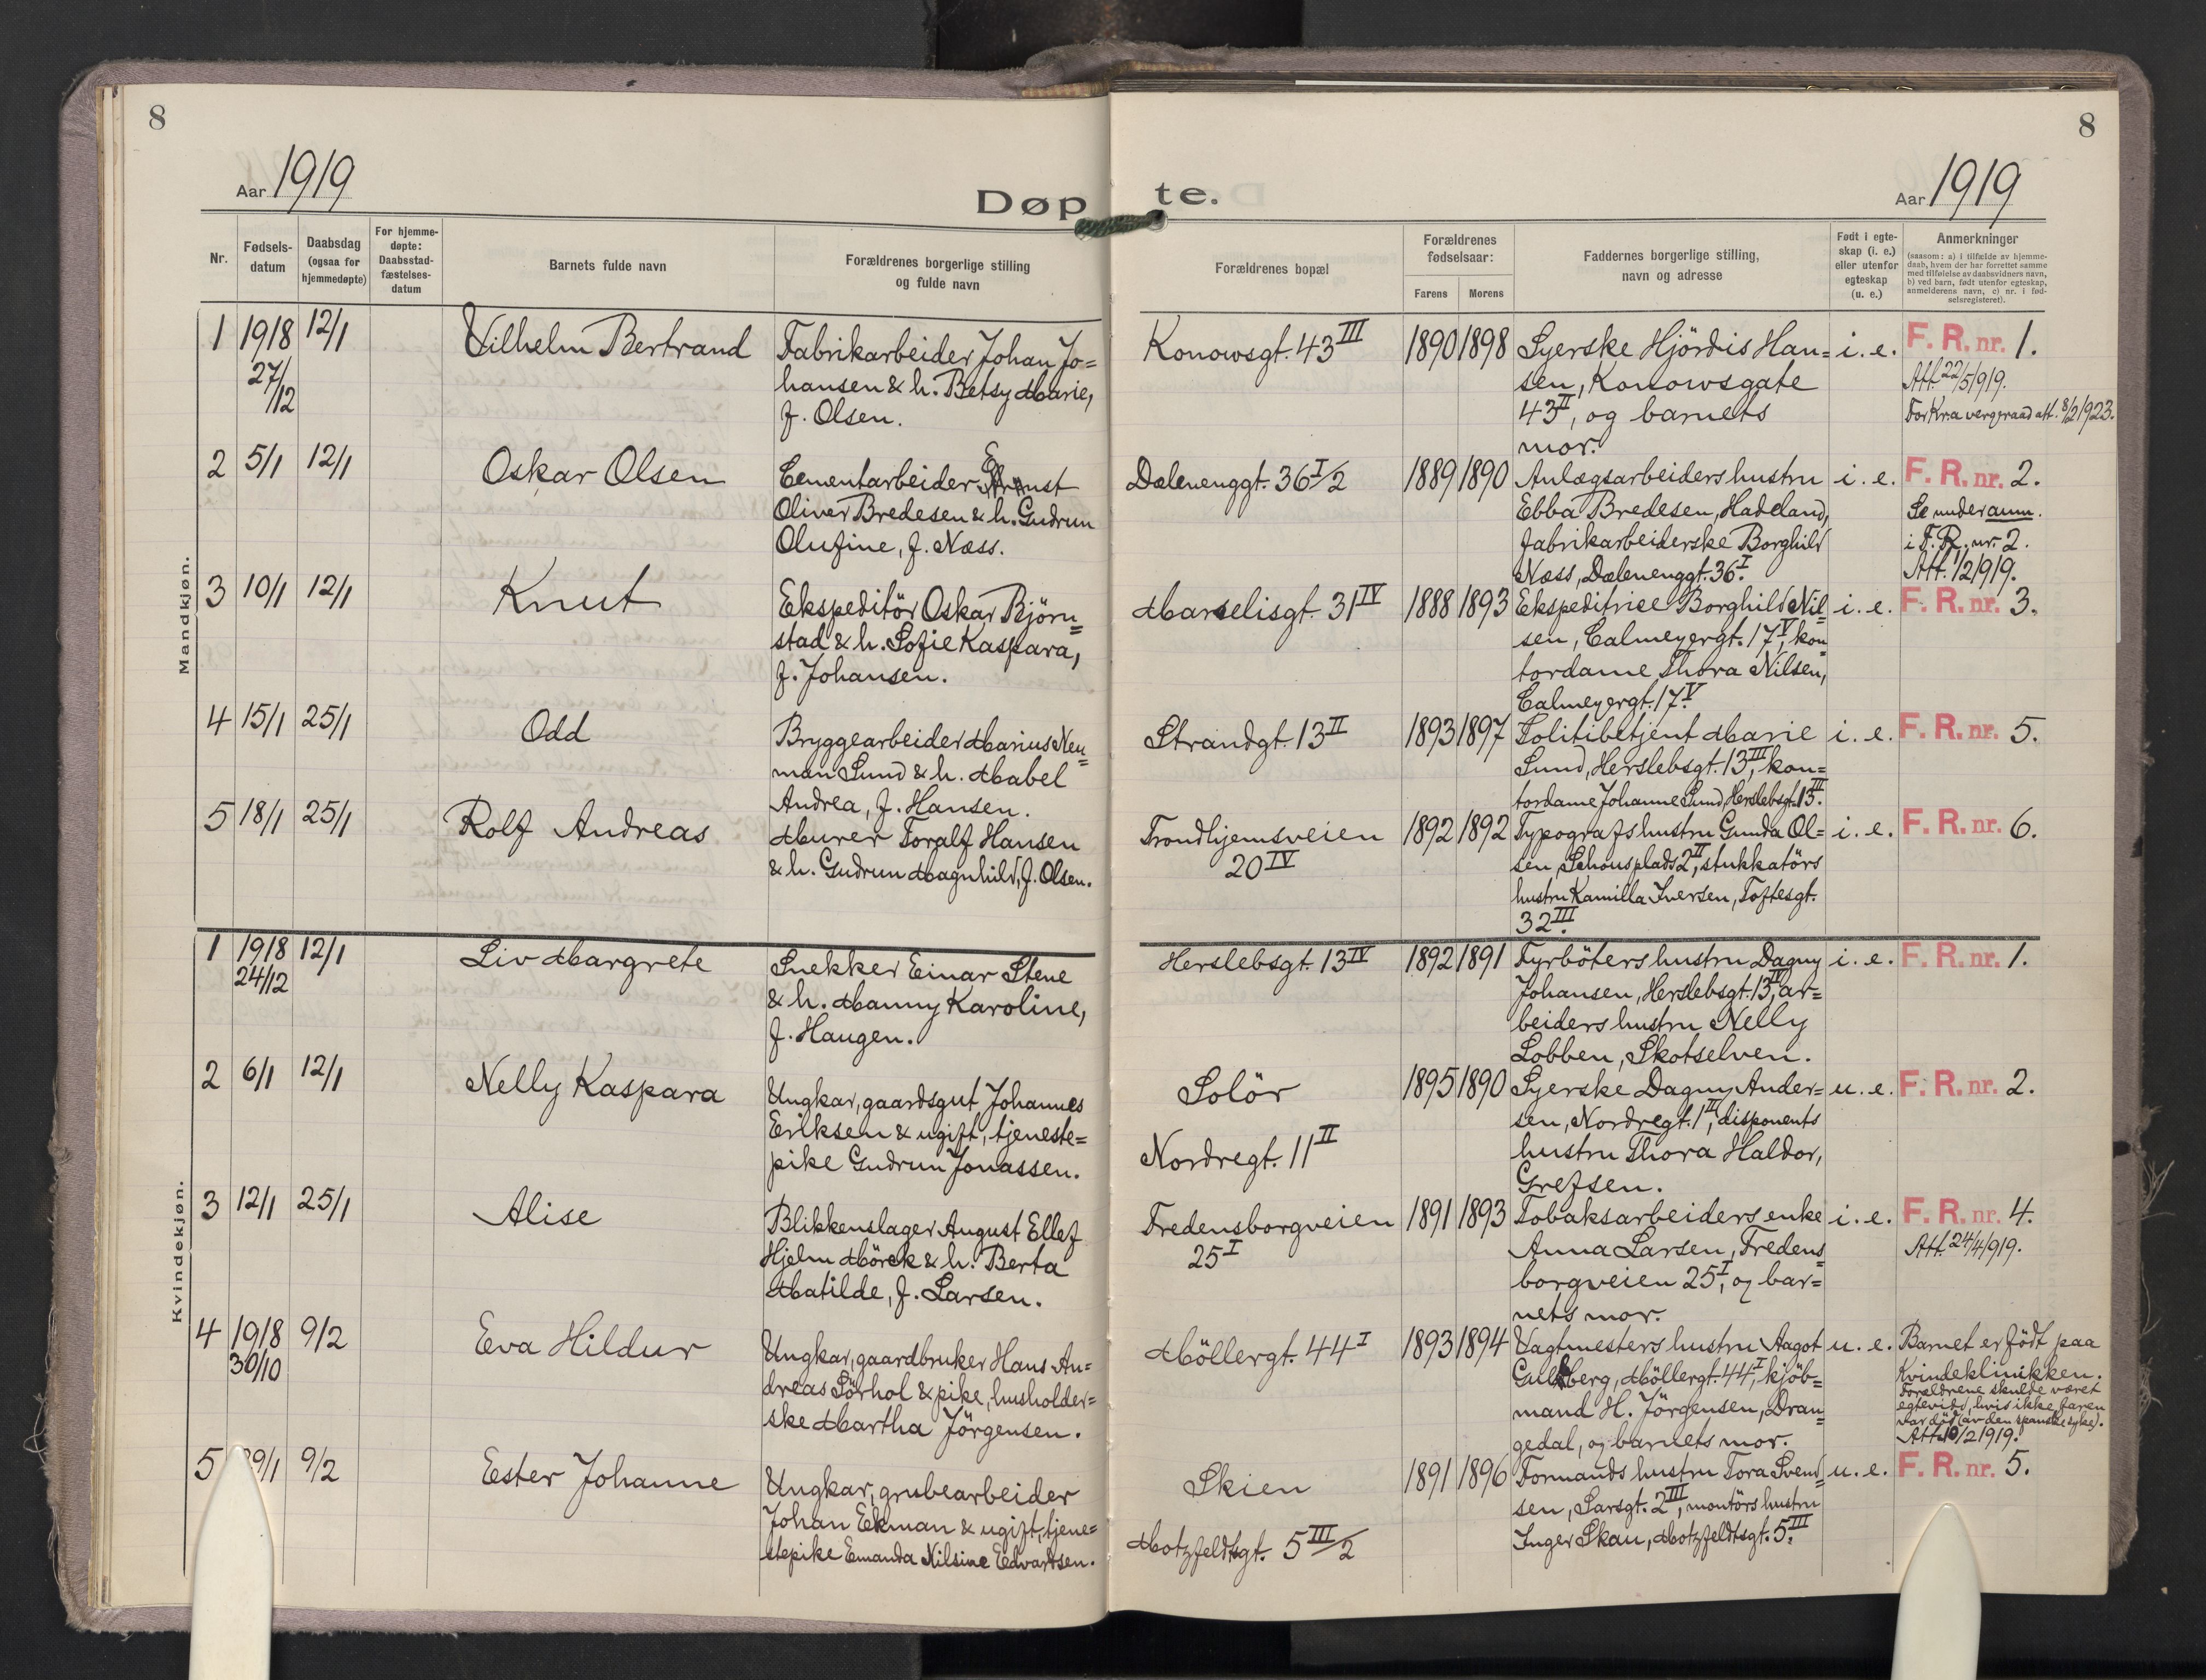 8
8
Aar 1919
Døpte.
Aar 1919
Nr.
Fødsels-
datum
Daabsdag
(ogsaa for
hjemmedøpte)
For hjemme-
døpte:
Daabsstad-
fæstelses-
datum
Barnets fulde navn
Forældrenes borgerlige stilling
og fulde navn
Forældrenes bopæl
Forældrenes
fødselsaar:
Farens
Morens
Faddernes borgerlige stilling,
navn og adresse
Født i egte-
skap (i. e.)
eller utenfor
egteskap
(u. e.)
Anmerkninger
(saasom: a) i tilfælde av hjemme-
daab, hvem der har forrettet samme
med tilføielse av daabsvidners navn,
b) ved barn, født utenfor egteskap,
anmelderens navn, c) nr. i fød-
selsregisteret).
Mandkjøn.
1
1918
27/12
12/1
Vilhelm Bertrand
Fabrikarbeider Johan Jo=
hansen & h. Betsy Marie,
f. Olsen.
Konowsgt. 43 III
1890
1898
Syerske Hjördis Han=
sen, Konowsgate
43 II, og barnets
mor.
i. e.
F. R. nr. 1.
Att. 22/5 1919.
For Kr.a vergeraad att. 8/2 1923.
2
5/1
12/1
Oskar Olsen
Cementarbeider Ernst
Oliver Bredesen & h. Gudrun
Olufine, f. Næss.
Dælenenggt. 36 I/2
1889
1890
Anlægsarbeiders hustru
Ebba Bredesen, Hadeland,
fabrikarbeiderske Borghild
Næss, Dælenenggt. 36 I.
i. e.
F. R. nr. 2.
Se under anm.
i F. R. nr. 2.
Att. 1/2 1919.
3
10/1
12/1
Knut
Ekspeditör Oskar Björn=
stad & h. Sofie Kaspara,
f. Johansen.
Marselisgt. 31 IV
1888
1893
Ekspeditrice Borghild Nil=
sen, Calmeyergt. 17 V, kon=
tordame Thora Nilsen,
Calmeyergt. 17 V.
i. e.
F. R. nr. 3.
4
15/1
25/1
Odd
Bryggearbeider Marius Neu=
man Lund & h. Mabel
Andrea, f. Hansen.
Strandgt. 13 II
1893
1897
Politibetjent Marie
Lund, Herslebsgt. 13 III, kon=
tordame Johanne Lund, Herslebsgt. 13 III.
i. e.
F. R. nr. 5.
5
18/1
25/1
Rolf Andreas
Murer Toralf Hansen
& h. Gudrun Magnhild, f. Olsen.
Trondhjemsveien
20 IV
1892
1892
Typografs hustru Gunda Ol=
sen, Schousplads 2 II, stukkatörs
hustru Kamilla Iversen, Toftesgt.
32 III.
i. e.
F. R. nr. 6.
Kvindekjøn.
1
1918
24/12
12/1
Liv Margrete
Snekker Einar Stene
& h. Manny Karoline,
f. Haugen.
Herslebsgt. 13 IV
1892
1891
Fyrböters hustru Dagny
Johansen, Herslebsgt. 13 IV, ar=
beiders hustru Nelly
Lobben, Skotselven.
i. e.
F. R. nr. 1.
2
6/1
12/1
Nelly Kaspara
Ungkar, gaardsgut, Johannes
Eriksen & ugift, tjeneste=
pike Gudrun Jonassen.
Solör
Nordregt. 11 II
1895
1890
Syerske Dagny Ander=
sen, Nordregt. 1 II, disponents
hustru Thora Haldor,
Grefsen.
u. e.
F. R. nr. 2.
3
12/1
25/1
Alise
Blikkenslager August Ellef
Hjelm Mörck & h. Berta
Matilde, f. Larsen.
Fredensborgveien
25 I
1891
1893
Tobaksarbeiders enke
Anna Larsen, Fredens=
borgveien 25 I, og bar=
nets mor.
i. e.
F. R. nr. 4.
Att. 24/4 1919.
4
1918
30/10
9/2
Eva Hildur
Ungkar, gaardbruker Hans An=
dreas Sörhol & pike, husholder=
ske Martha Jörgensen.
Möllergt. 44 I
1893
1894
Vagtmesters hustru Aagot
Gulsberg, Möllergt. 44 I, kjöb=
mand H. Jörgensen, Dran=
gedal, og barnets mor.
u. e.
Barnet er födt paa
Kvindeklinikken.
Forældrene skulde været
egteviet, hvis ikke faren
var död (av den spanske syke).
Att. 10/2 1919.
5
29/1
9/2
Ester Johanne
Ungkar, grubearbeider
Johan Ekman & ugift, tjene=
stepike Emanda Nilsine Edvardsen.
Skien
Motzfeldtsgt. 5 III/2
1891
1896
Formands hustru Tora Svend=
sen, Larsgt. 2 III, montörs hustru
Inger Skau, Motzfeldtsgt. 5 III.
u. e.
F. R. nr. 5.